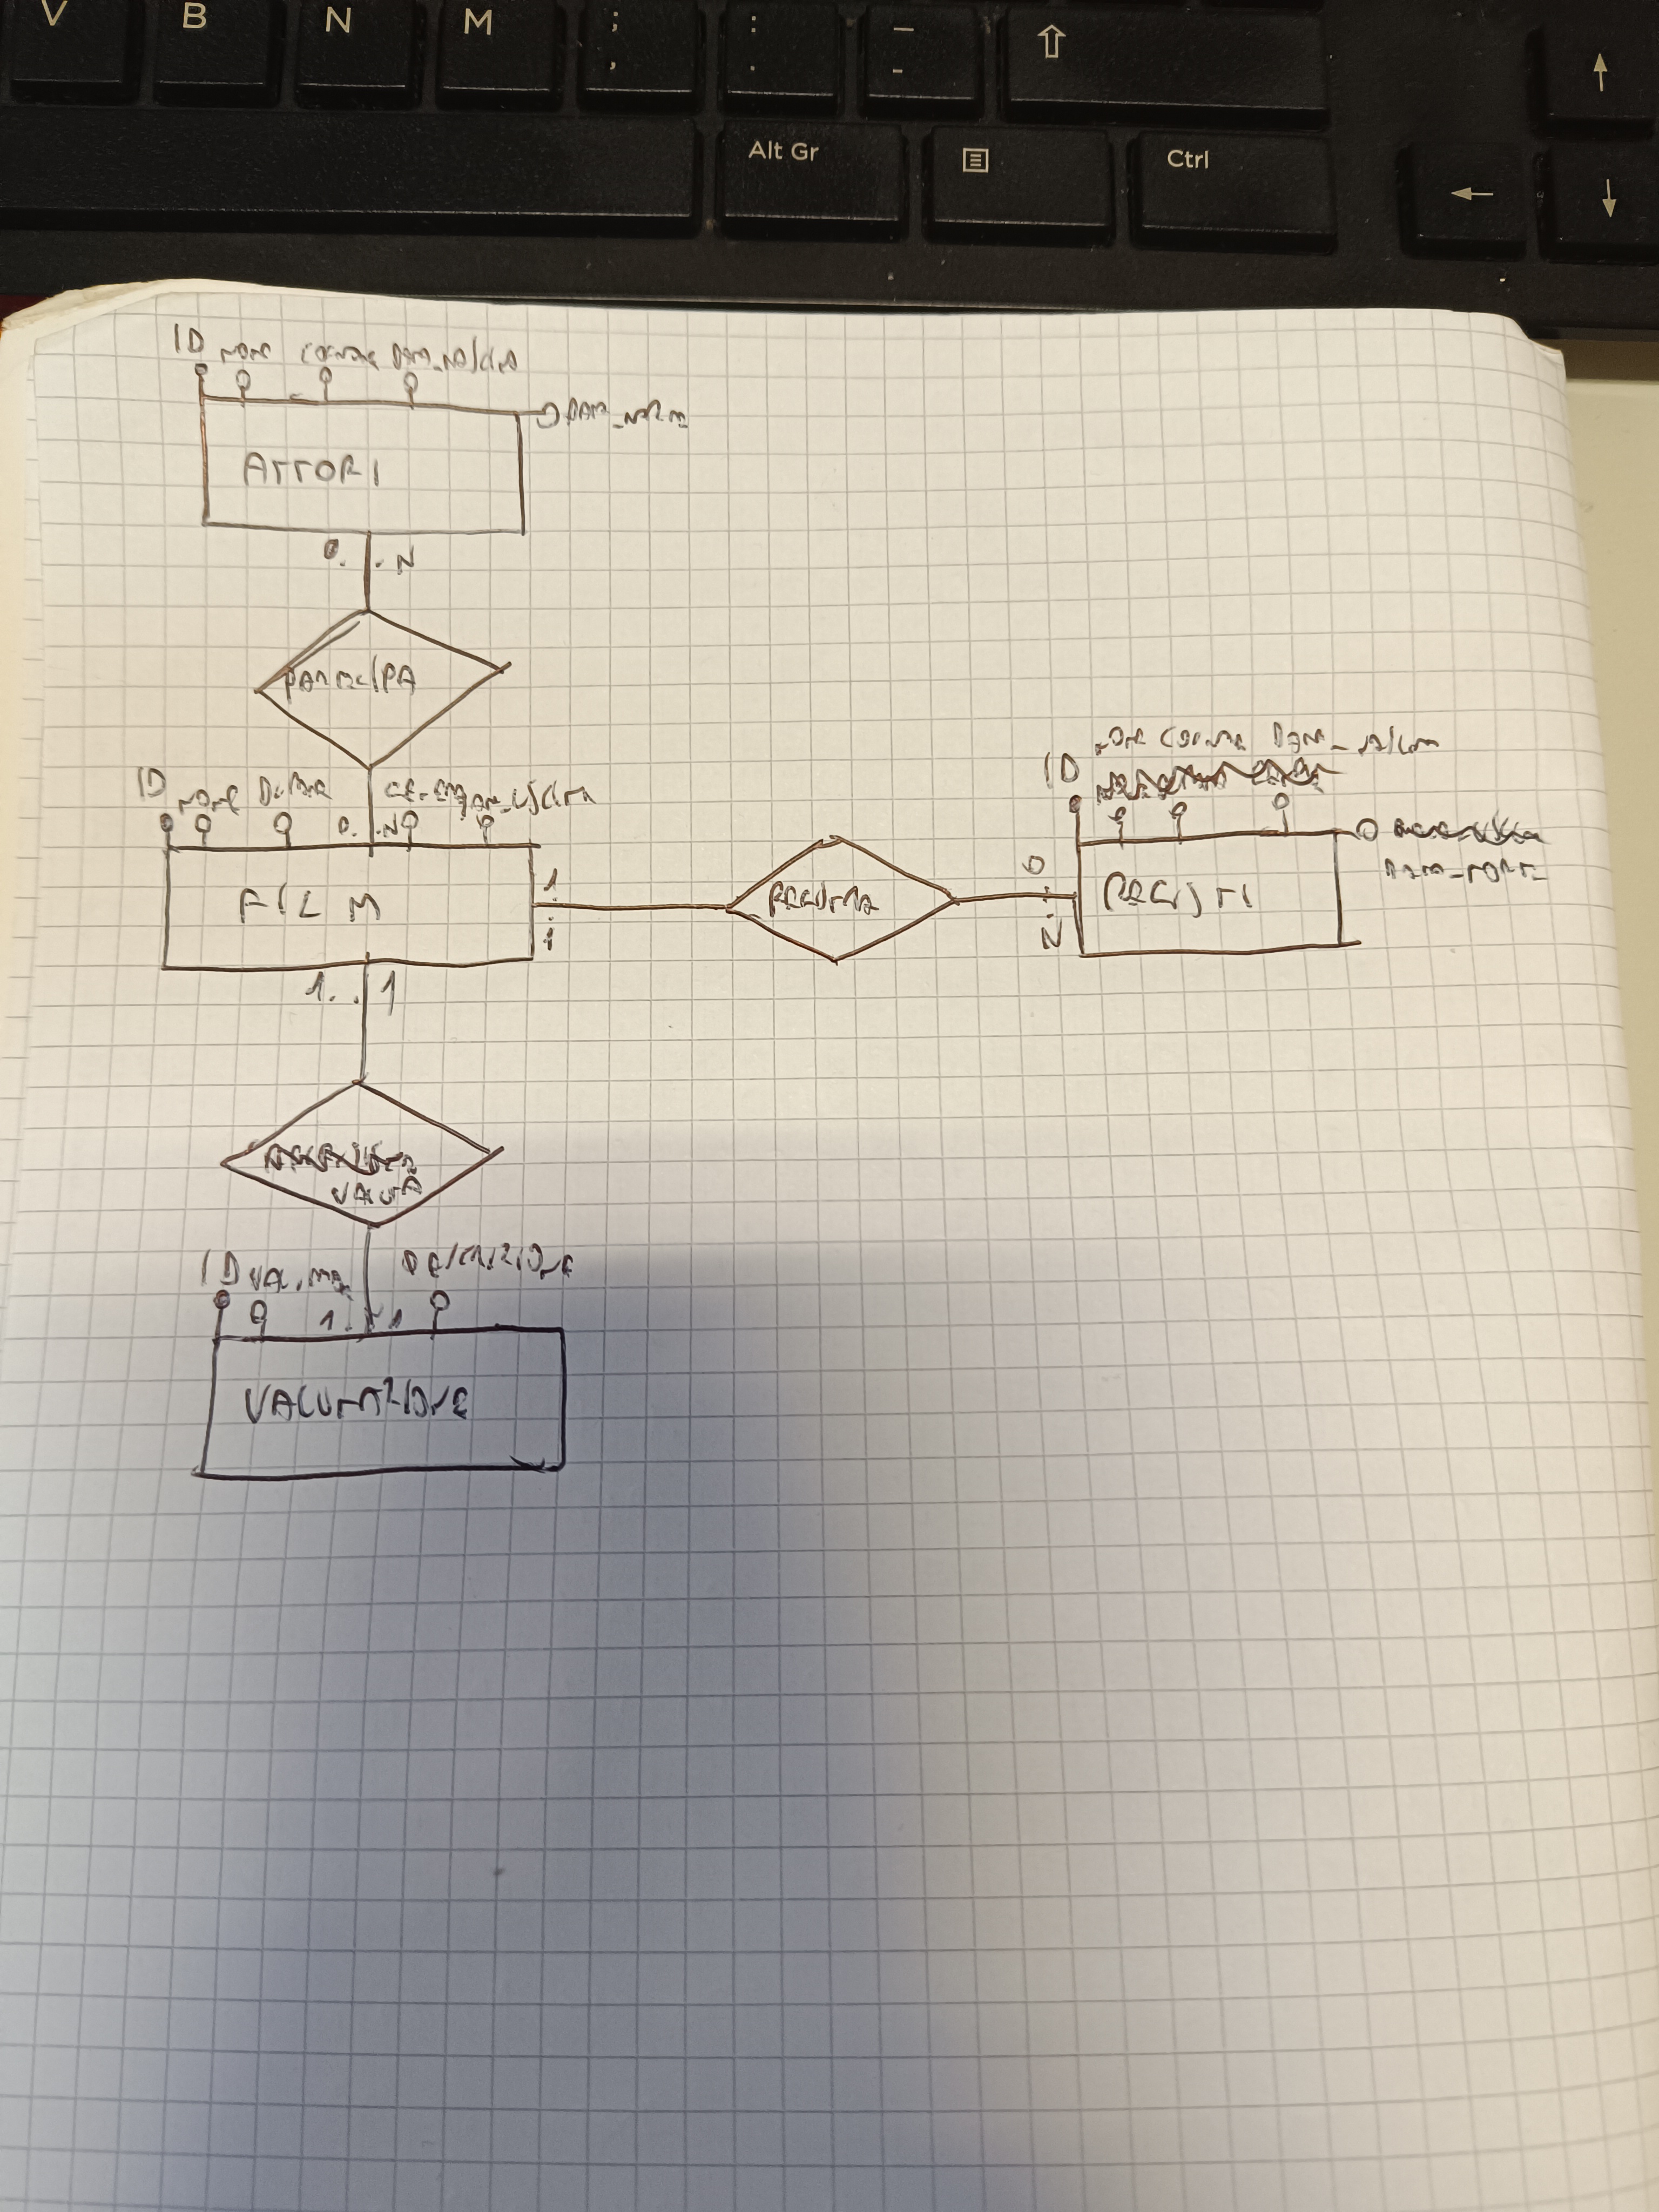 V B N M ; , : . _ -
Alt Gr Ctrl
ID nome cognome Data_nascita
Data_morte
ATTORI
0..N
PARTECIPA
ID nome Durata Genere Data_uscita
0..N
FILM
1..1
0..N
ID nome cognome Data_nascita
Data_morte
REGISTI
1..1
VALUTA
ID DESCRIZIONE
1..1
VALUTAZIONE